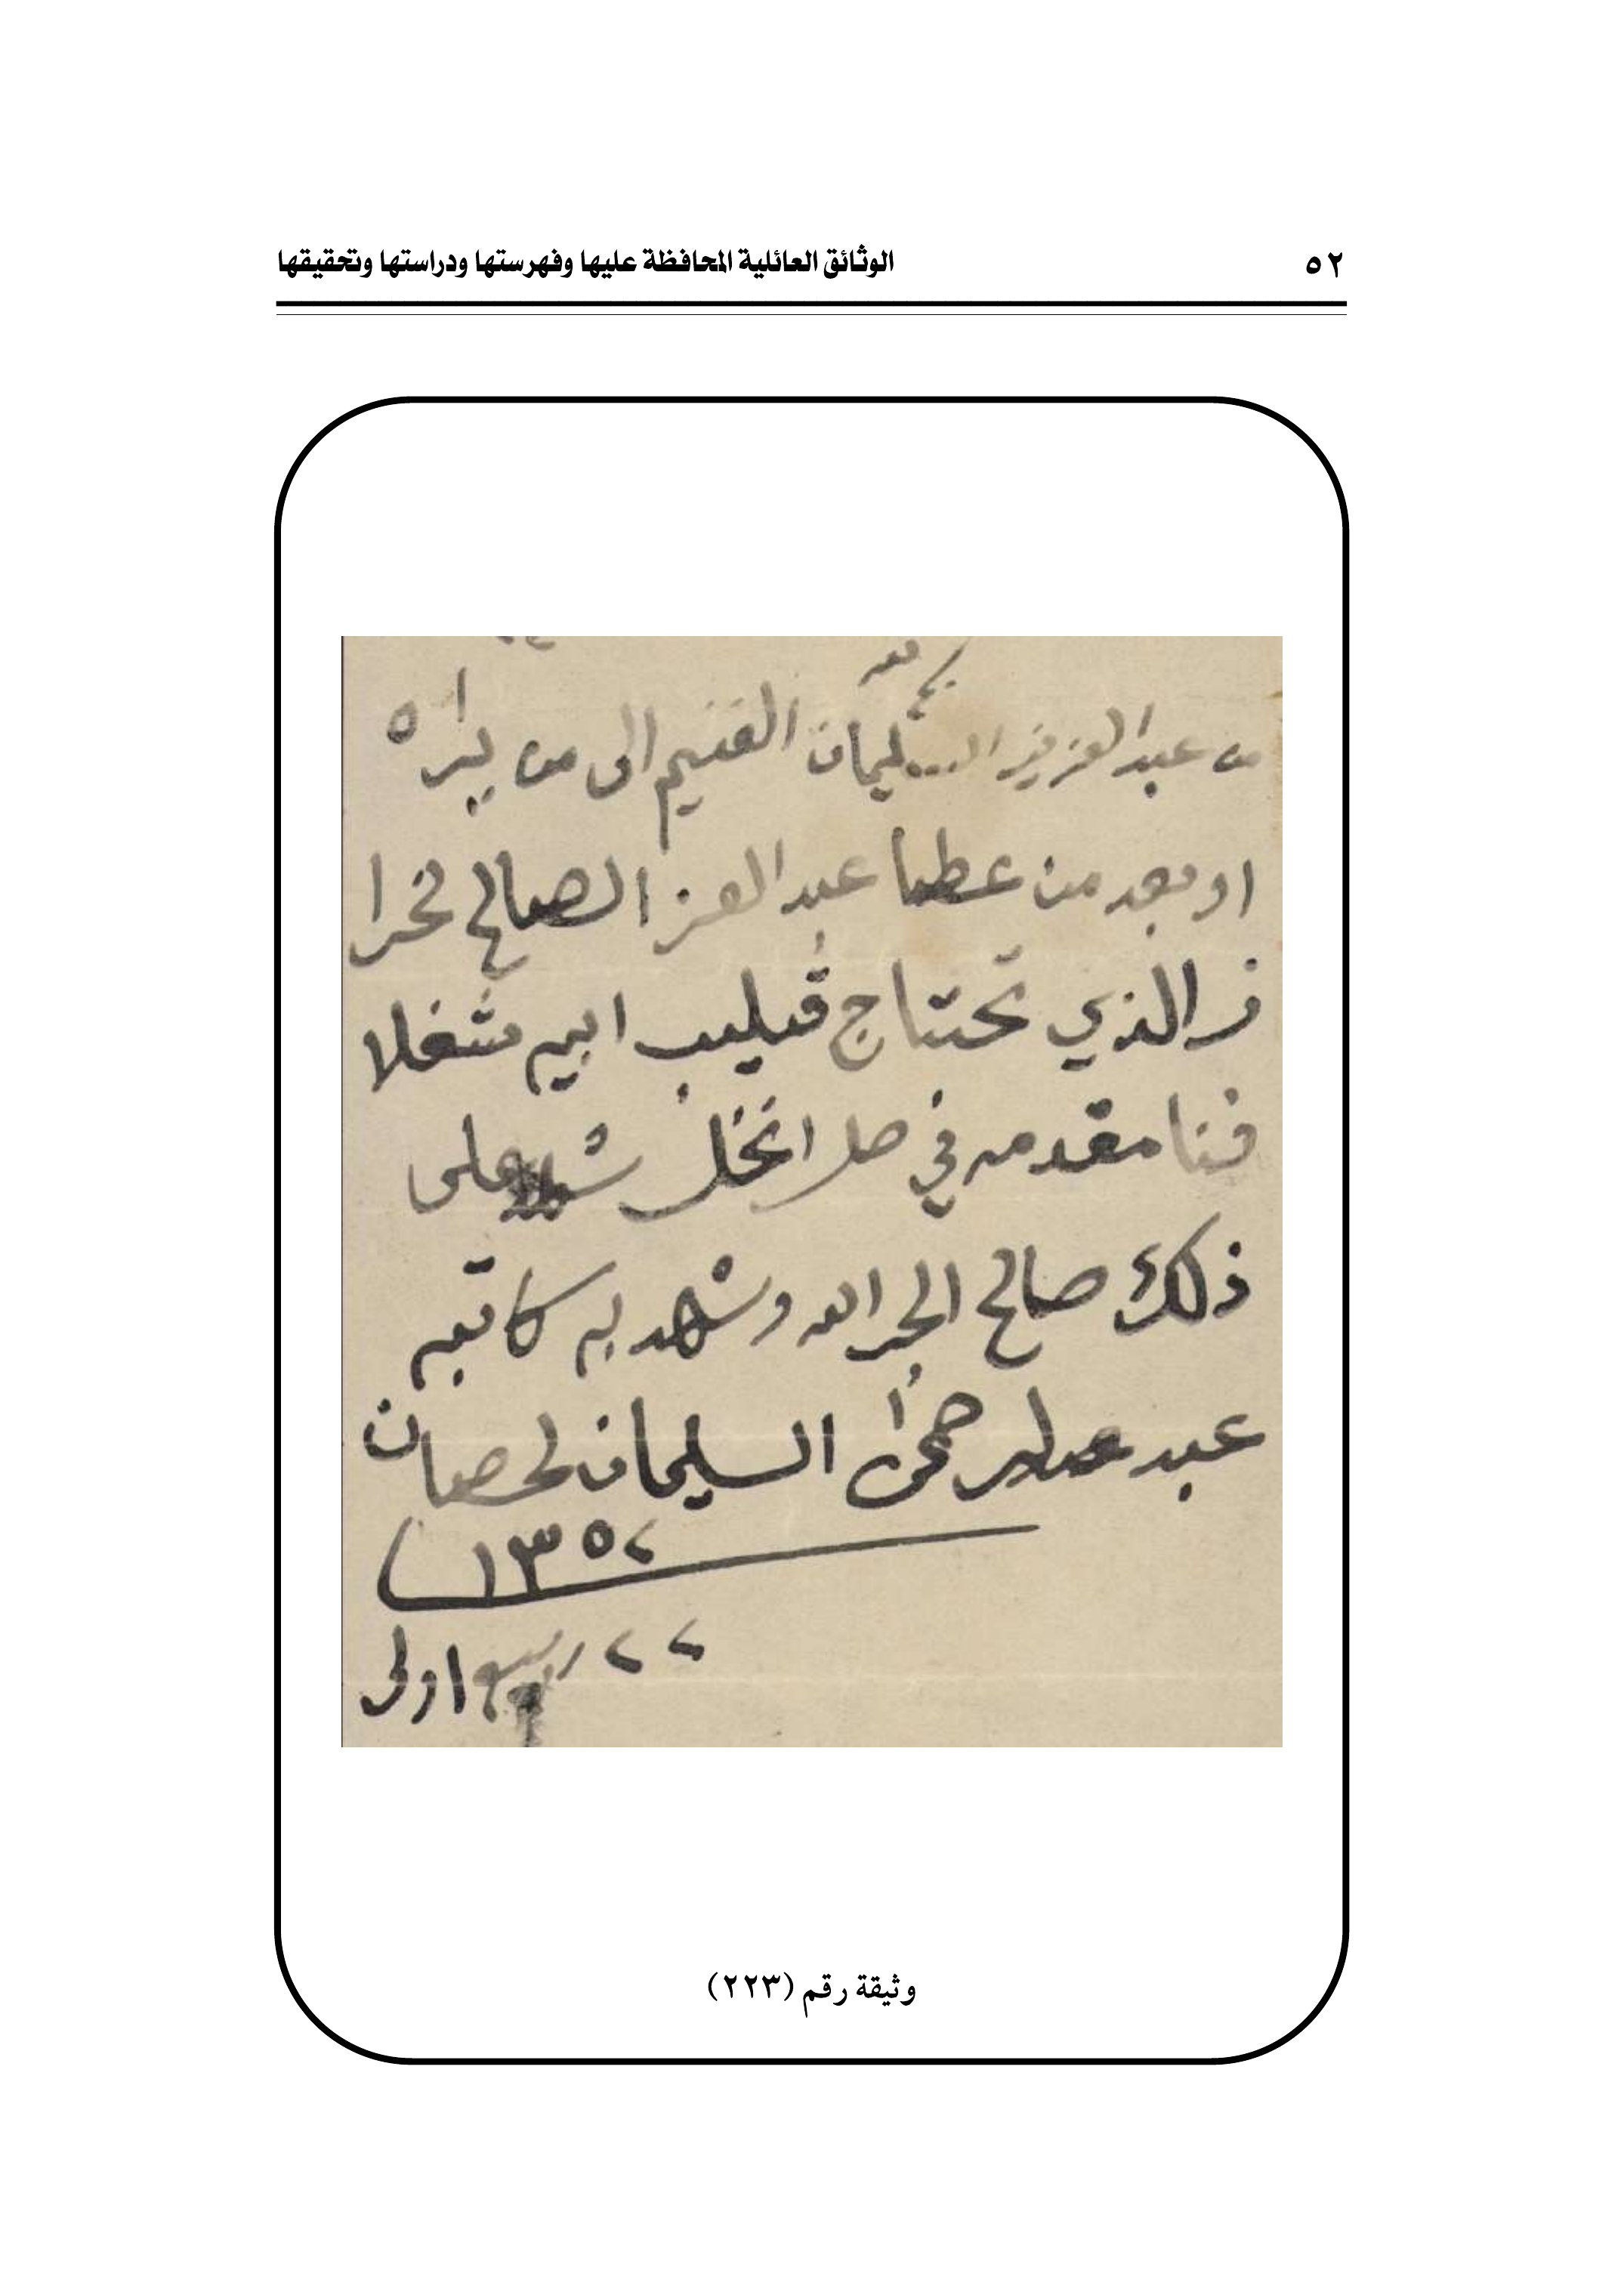 ٥٢ الوثائق العائلية المحافظة عليها وفهرستها ودراستها وتحقيقها
من عبدالعزيز السليمان الغنيم الى من يراه
او بعد من عطا عبدالعز الصالح نحرا
فر الذي تحتاج قليب ابيه شغلا
فنا مقدمه في صلا نخل شهد على
ذلك صالح الجرالله وشهد به كاتبه
عبد الرحمن السليمان لحصان
١٣٥٢
٢٢ ربيع اولى
وثيقة رقم (٢٢٣)